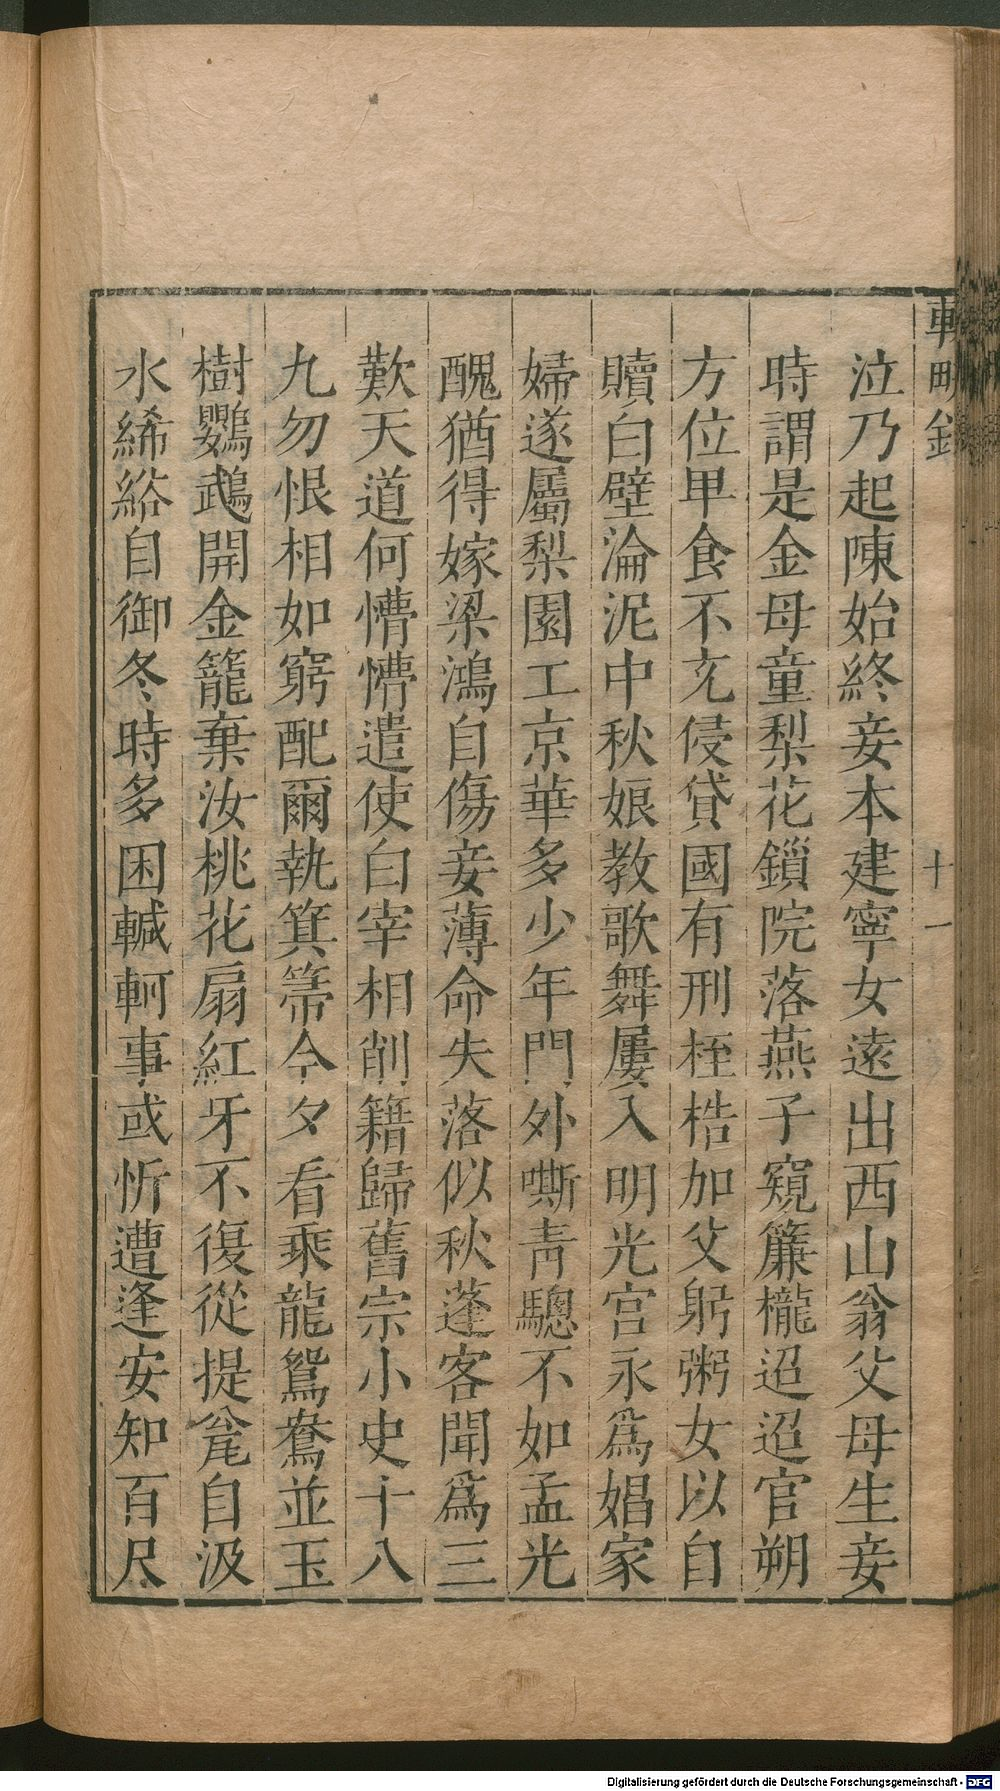 車畊錄
十一
泣乃起陳始終妾本建寧女遠出西山翁父母生妾
時謂是金母童梨花鎖院落燕子窺簾櫳迢迢官朔
方位卑食不充侵貸國有刑桎梏加父躬粥女以自
贖白璧淪泥中秋娘教歌舞屢入明光宮永爲娼家
婦遂屬梨園工京華多少年門外嘶靑驄不如孟光
醜猶得嫁梁鴻自傷妾薄命失落似秋蓬客聞爲三
歎天道何懵懵遣使白宰相削籍歸舊宗小史十八
九勿恨相如窮配爾執箕箒今夕看乘龍鴛鴦並玉
樹鸚鵡開金籠棄汝桃花扇紅牙不復從提瓮自汲
水絺綌自御冬時多困轗軻事或忻遭逢安知百尺
Digitalisierung gefördert durch die Deutsche Forschungsgemeinschaft - DFG